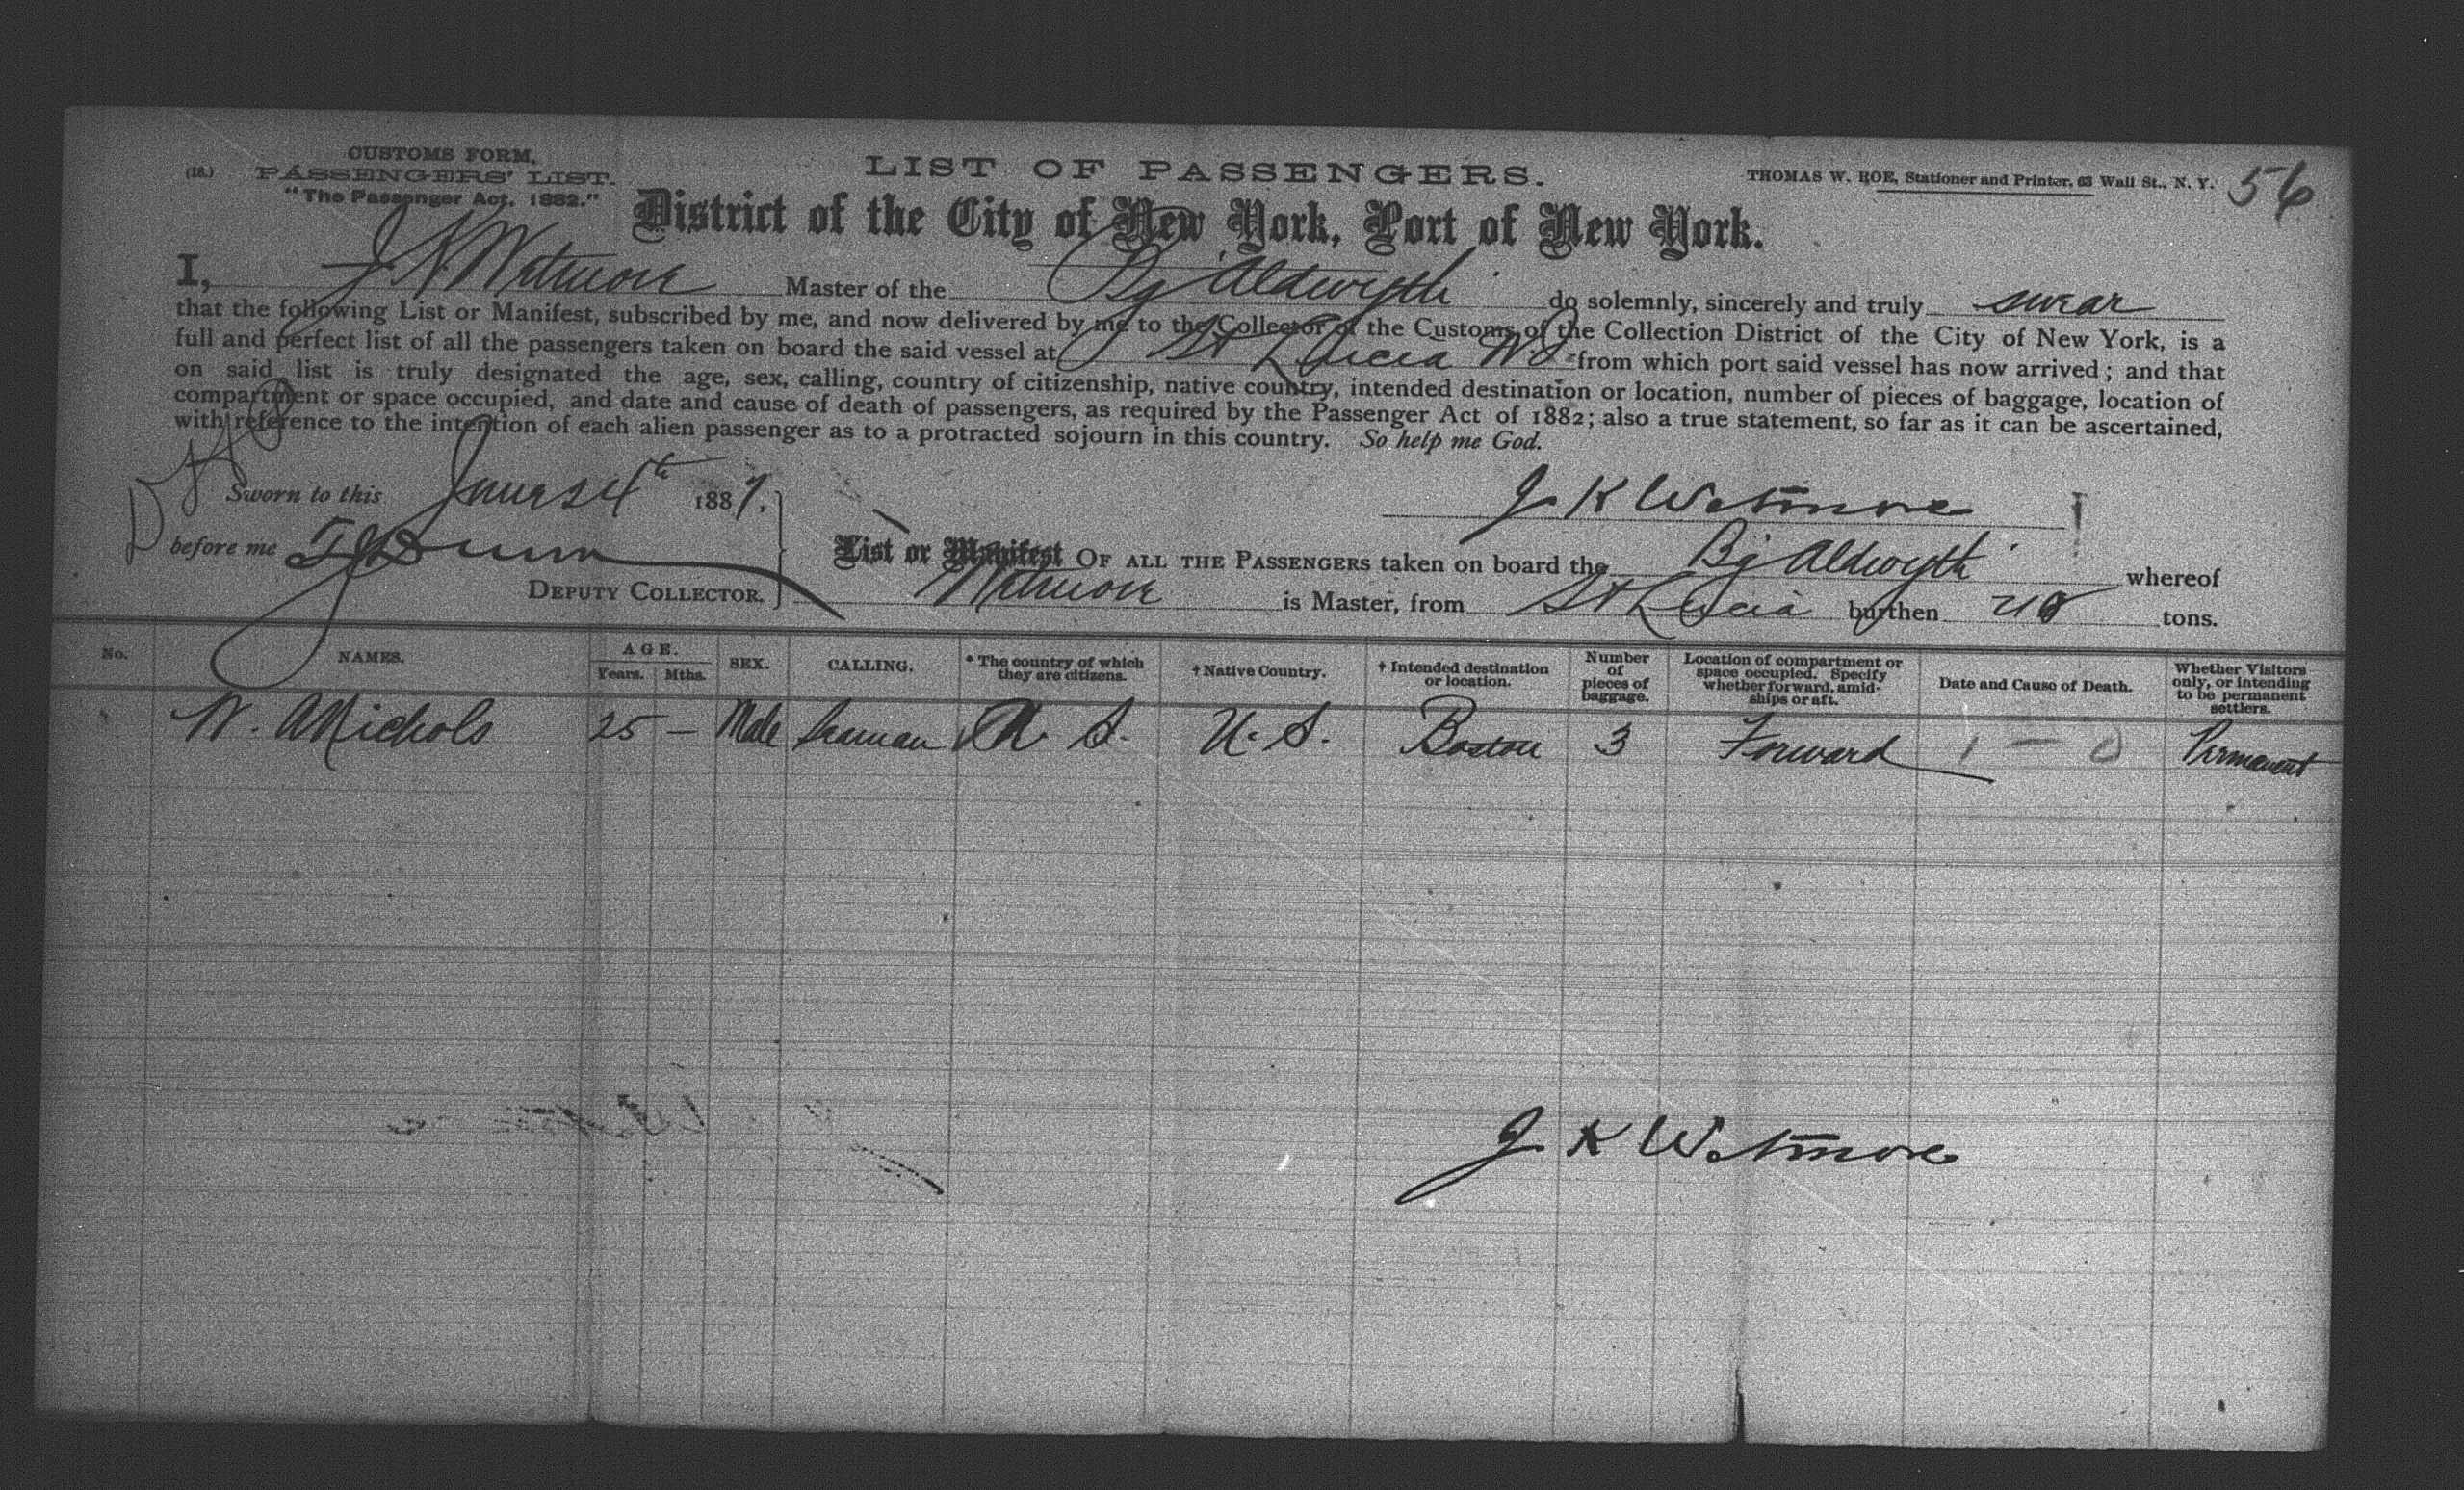 CUSTOMS FORM.
(18.) PASSENGERS' LIST.
"The Passenger Act, 1882."
LIST OF PASSENGERS.
THOMAS W. ROE, Stationer and Printer, 63 Wall St., N. Y.
56
District of the City of New York, Port of New York.
I, J. K. Wetmore Master of the Bg Aldwyth do solemnly, sincerely and truly swear
that the following List or Manifest, subscribed by me, and now delivered by me to the Collector of the Customs of the Collection District of the City of New York, is a
full and perfect list of all the passengers taken on board the said vessel at St Lucia W I from which port said vessel has now arrived; and that
on said list is truly designated the age, sex, calling, country of citizenship, native country, intended destination or location, number of pieces of baggage, location of
compartment or space occupied, and date and cause of death of passengers, as required by the Passenger Act of 1882; also a true statement, so far as it can be ascertained,
with reference to the intention of each alien passenger as to a protracted sojourn in this country. So help me God.
Sworn to this June 24th 1887,
J K Wetmore
before me
DEPUTY COLLECTOR.
List or Manifest OF ALL THE PASSENGERS taken on board the Bg Aldwyth whereof
Wetmore is Master, from St Lucia burthen tons.
No. NAMES. AGE. Years. Mths. SEX. CALLING. * The country of which they are citizens. † Native Country. † Intended destination or location. Number of pieces of baggage. Location of compartment or space occupied. Specify whether forward, amidships or aft. Date and Cause of Death. Whether Visitors only, or intending to be permanent settlers.
W. A Nichols 25 – Male Seaman U. S. U. S. Boston 3 Forward 1 – 0 Permanent
J K Wetmore